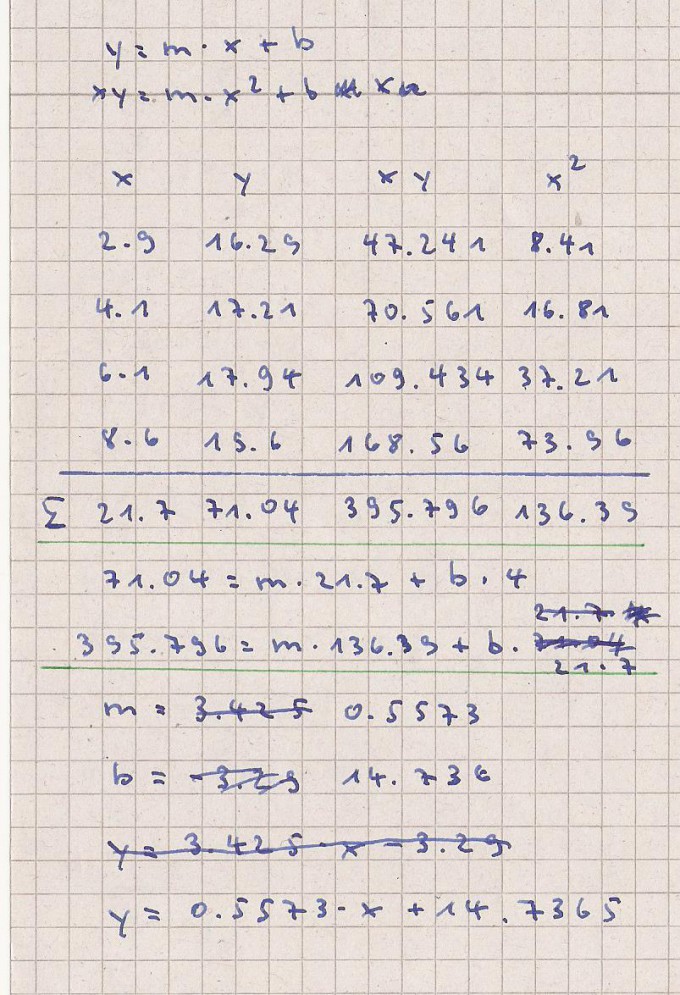 y = m · x + b
xy = m · x² + b x
x y xy x²
2.9 16.29 47.241 8.41
4.1 17.21 70.561 16.81
6.1 17.94 109.434 37.21
8.6 19.6 168.56 73.96
Σ 21.7 71.04 395.796 136.39
71.04 = m · 21.7 + b · 4
21.7
395.796 = m · 136.39 + b · 71.04
21.7
m = 3.425 0.5573
b = -3.29 14.736
y = 3.425 · x - 3.29
y = 0.5573 · x + 14.7365